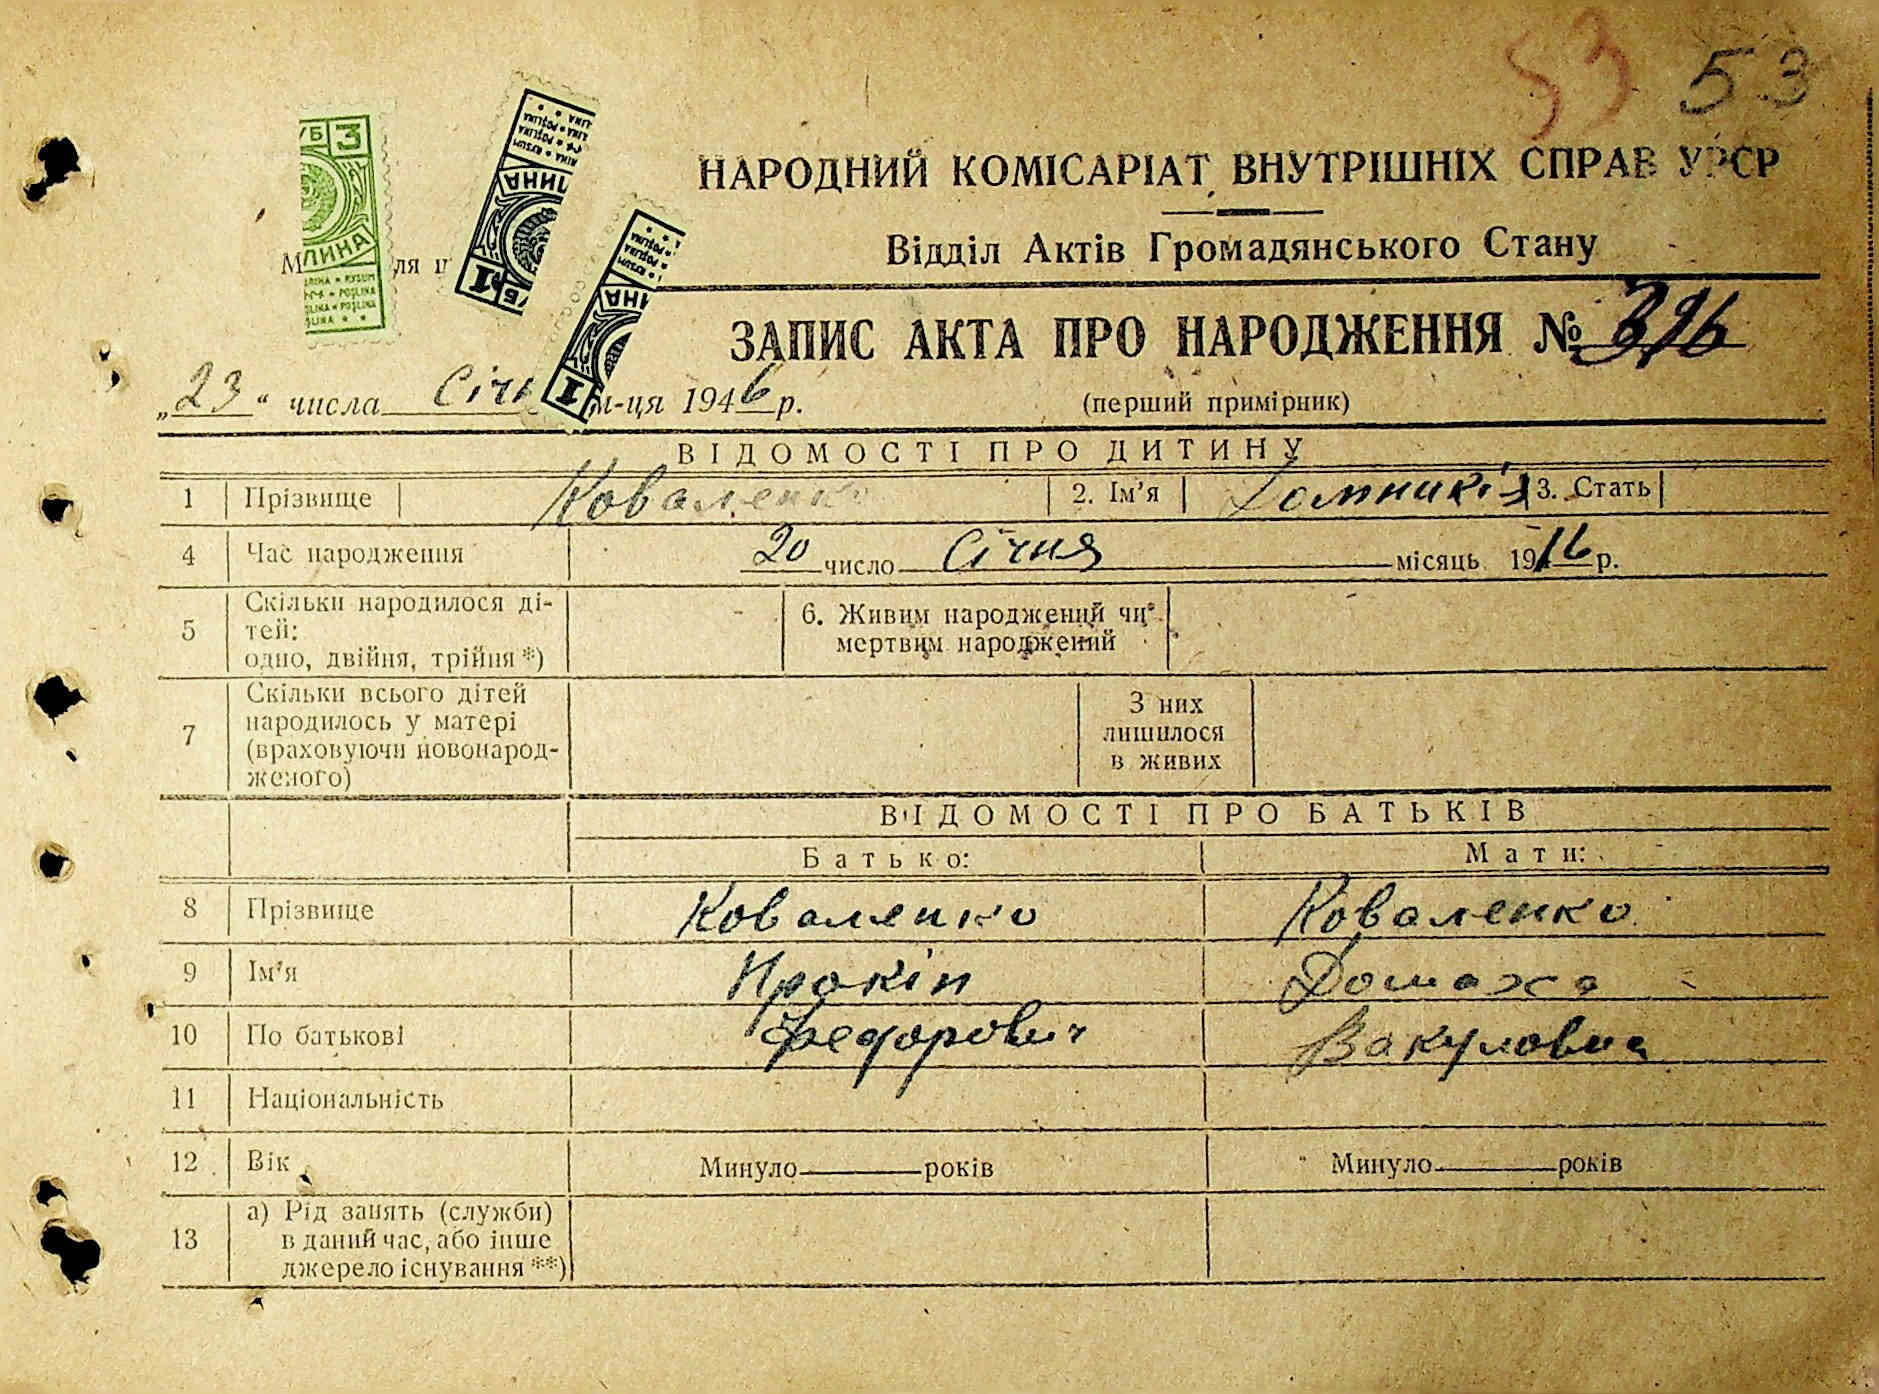 53 53
НАРОДНИЙ КОМІСАРІАТ ВНУТРІШНІХ СПРАВ УРСР
Відділ Актів Громадянського Стану
ЗАПИС АКТА ПРО НАРОДЖЕННЯ №
„23“ числа Січн м-ця 1946 р.
(перший примірник)
ВІДОМОСТІ ПРО ДИТИНУ
1 Прізвище Коваленко 2. Ім'я Домникія 3. Стать
4 Час народження 20 число Січня місяць 1916 р.
5 Скільки народилося ді-
тей:
одно, двійня, трійня *)
6. Живим народжений чи
мертвим народжений
7 Скільки всього дітей
народилось у матері
(враховуючи новонарод-
женого)
З них
лишилося
в живих
ВІДОМОСТІ ПРО БАТЬКІВ
Батько: Мати:
8 Прізвище Коваленко Коваленко
9 Ім'я Прокіп Домаха
10 По батькові Федорович Вакуловна
11 Національність
12 Вік Минуло років Минуло років
13 а) Рід занять (служби)
в даний час, або інше
джерело існування **)